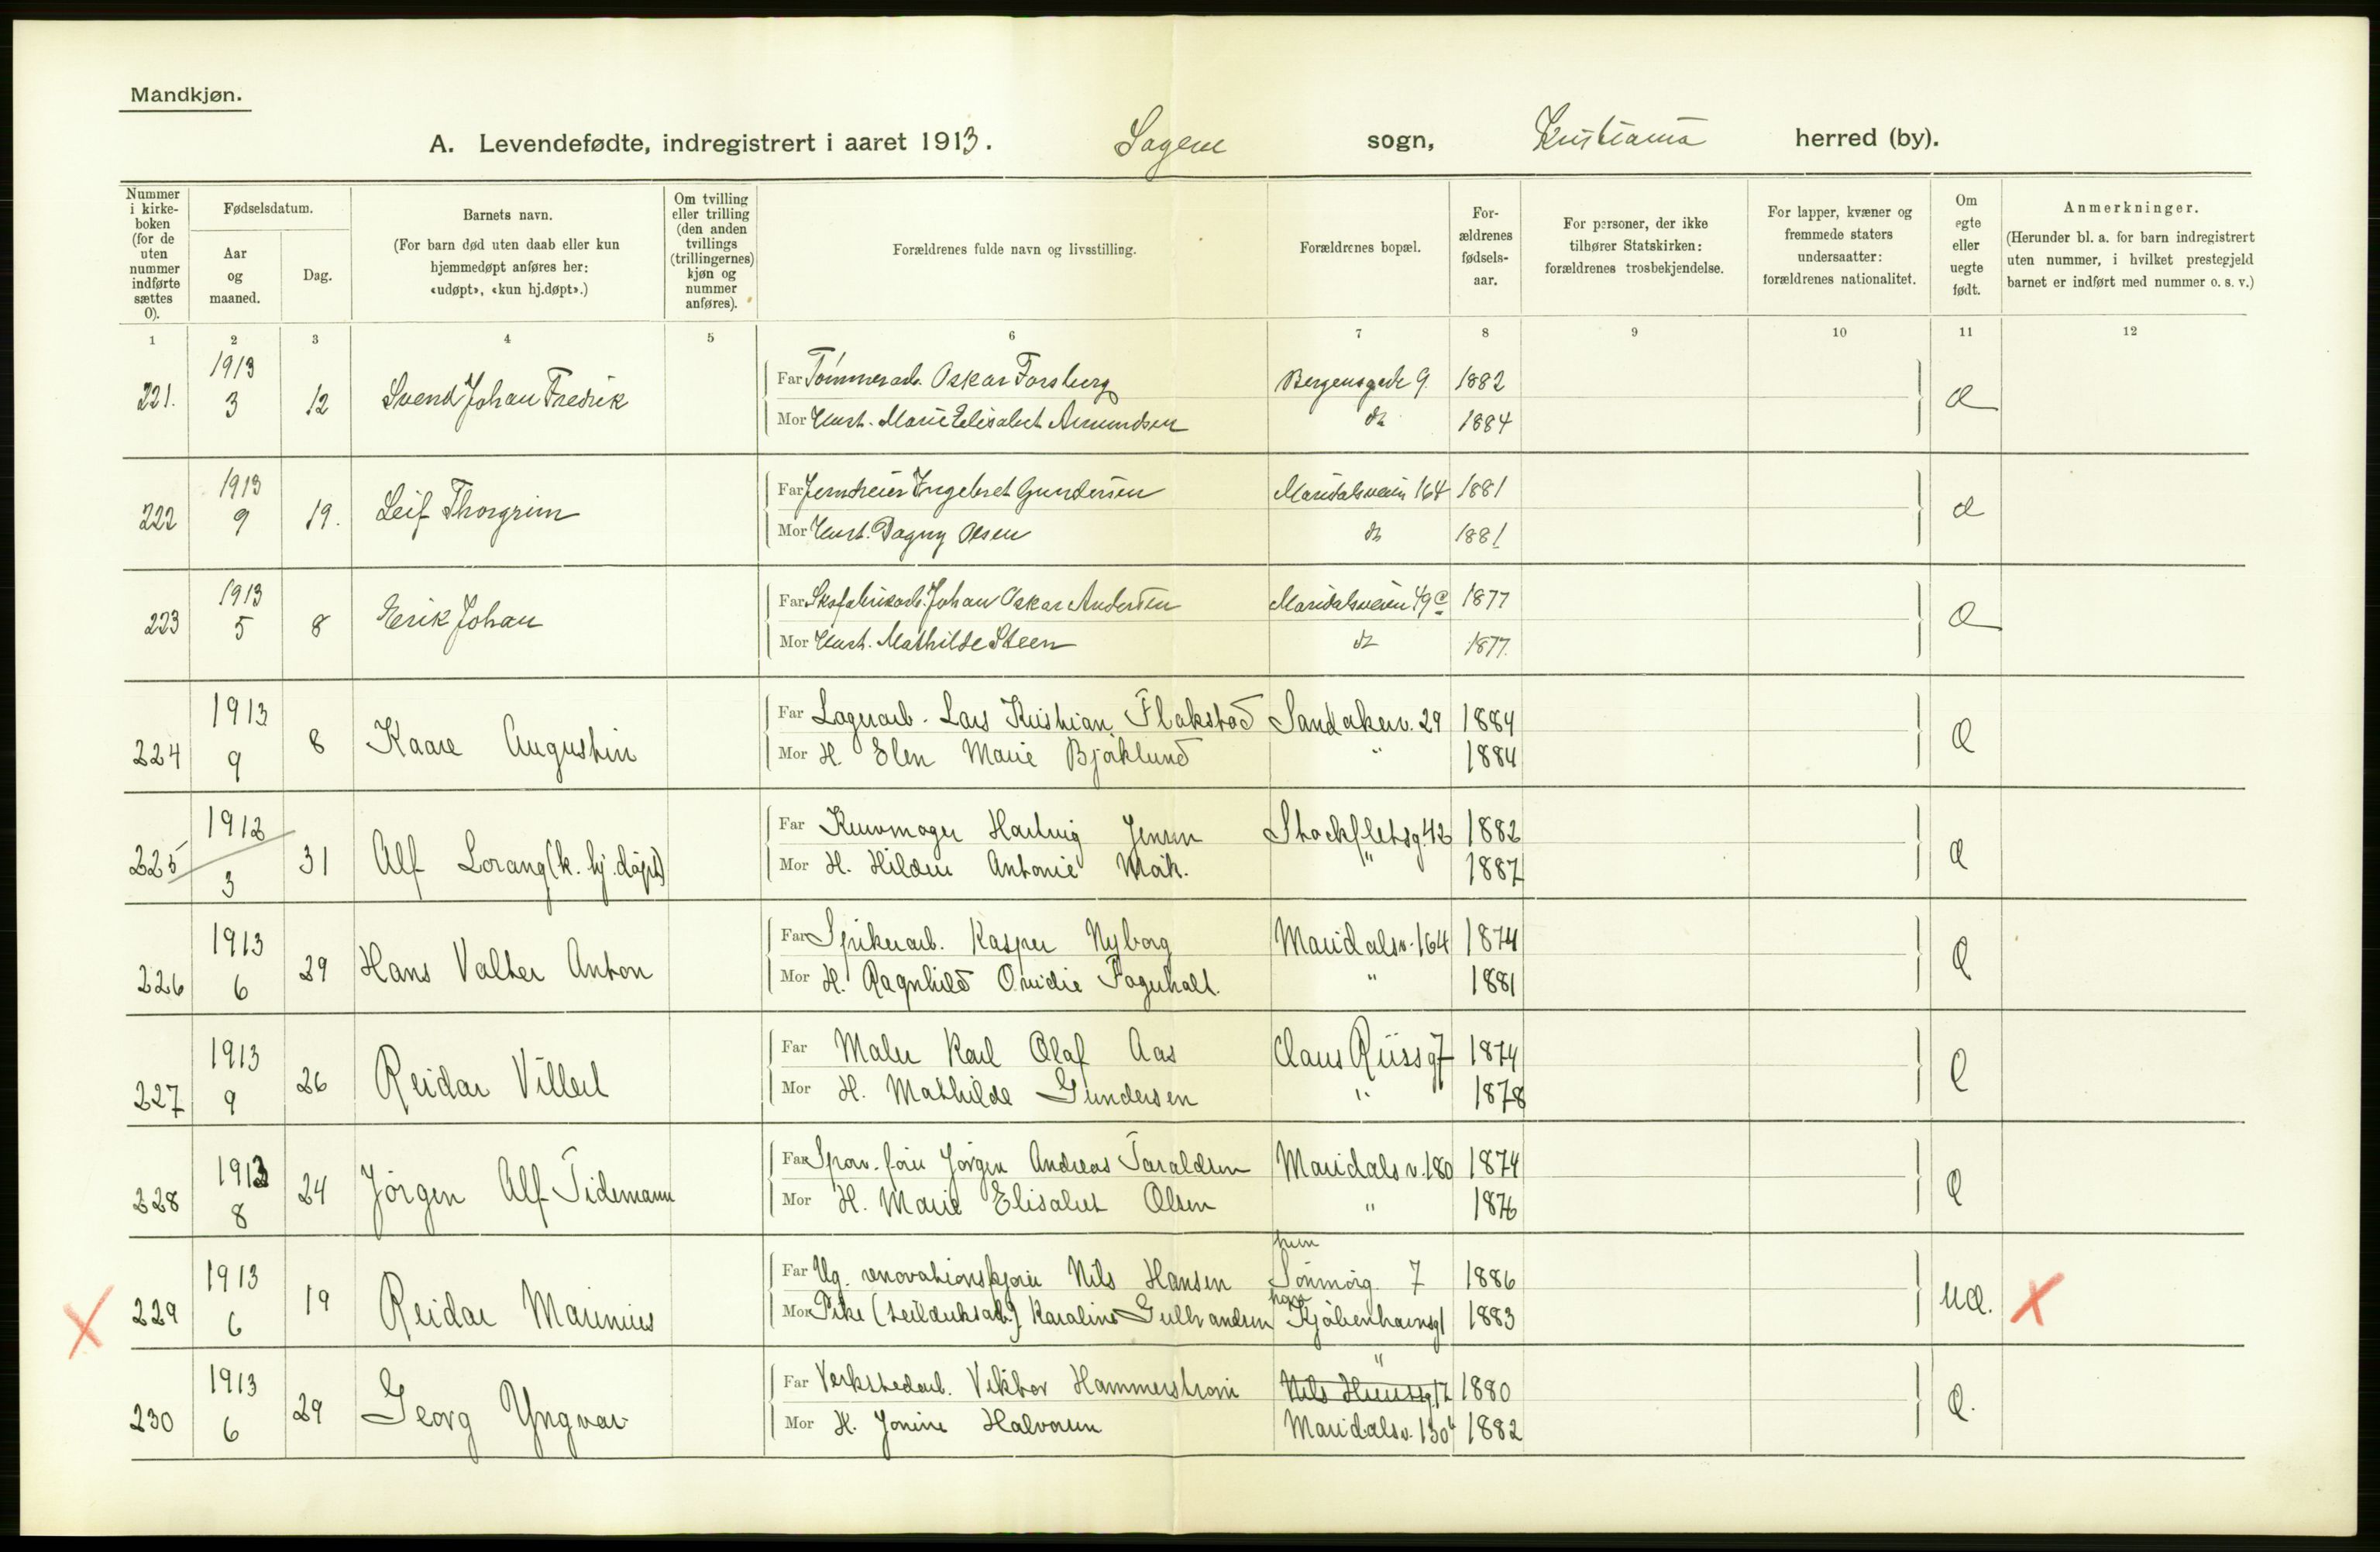 Mandkjøn.
A. Levendefødte, indregistrert i aaret 1913. Sagene sogn, Kristiania herred (by).
Nummer i kirkeboken (for de uten nummer indførte sættes 0).
Fødselsdatum.
Aar og maaned.
Dag.
Barnets navn.
(For barn død uten daab eller kun hjemmedøpt anføres her: «udøpt», «kun hj.døpt».)
Om tvilling eller trilling (den anden tvillings (trillingernes) kjøn og nummer anføres).
Forældrenes fulde navn og livsstilling.
Forældrenes bopæl.
Forældrenes fødselsaar.
For personer, der ikke tilhører Statskirken: forældrenes trosbekjendelse.
For lapper, kvæner og fremmede staters undersaatter: forældrenes nationalitet.
Om egte eller uegte født.
Anmerkninger.
(Herunder bl. a. for barn indregistrert uten nummer, i hvilket prestegjeld barnet er indført med nummer o. s. v.)
1 2 3 4 5 6 7 8 9 10 11 12
221. 1913 3 12 Svend Johan Fredrik Far Tømmerarb. Oskar Forsberg Bergensgade 9. 1882 Æ
Mor Hust. Marie Elisabet Amundsen do 1884
222 1913 9 19. Leif Thorgrim Far Jerndreier Ingebret Gundersen Maridalsveien 164 1881 Æ
Mor Hust. Dagny Olsen do 1881
223 1913 5 8 Erik Johan Far Skofabrikarb. Johan Oskar Andersen Maridalsveien 49c 1877 Æ
Mor Hust. Mathilde Steen do 1877.
224 1913 9 8 Kaare Augustin Far Lagerarb. Lars Kristian Flakstad Sandakerv. 29 1884 Æ
Mor H. Elen Marie Bjørklund " 1884
225 1913 3 31 Alf Lorang (k. hj. døpt) Far Kurvmager Hartvig Jensen Stockfletsg. 42 1882 Æ
Mor H. Hildur Antonie Mørk. " 1887
226 1913 6 29 Hans Valter Anton Far Spikerarb. Kasper Nyborg Maridalsv. 164 1874 Æ
Mor H. Ragnhild Ovidie Fagerholt. " 1881
227 1913 9 26 Reidar Villed Far Maler Karl Olaf Aas Claus Riissg 7 1874 Æ
Mor H. Mathilde Gundersen " 1878
228 1913 8 24 Jørgen Alf Tidemann Far Sporv. fører Jørgen Andreas Taraldsen Maridalsv. 180 1874 Æ
Mor H. Marie Elisabet Olsen " 1876
229 1913 6 19 Reidar Marinius Far Ug. renovationskjører Nils Hansen hun Sønmørg. 7 1886 Uæ.
Mor Pike (seildukarb.) Karoline Gulbrandsen Kjøbenhavnsg 1 1883
230 1913 6 29 Georg Yngvar Far Verkstedarb. Viktor Hammerstrøm " 1880 Æ.
Mor H. Jonine Halvorsen Maridalsv. 130 1882